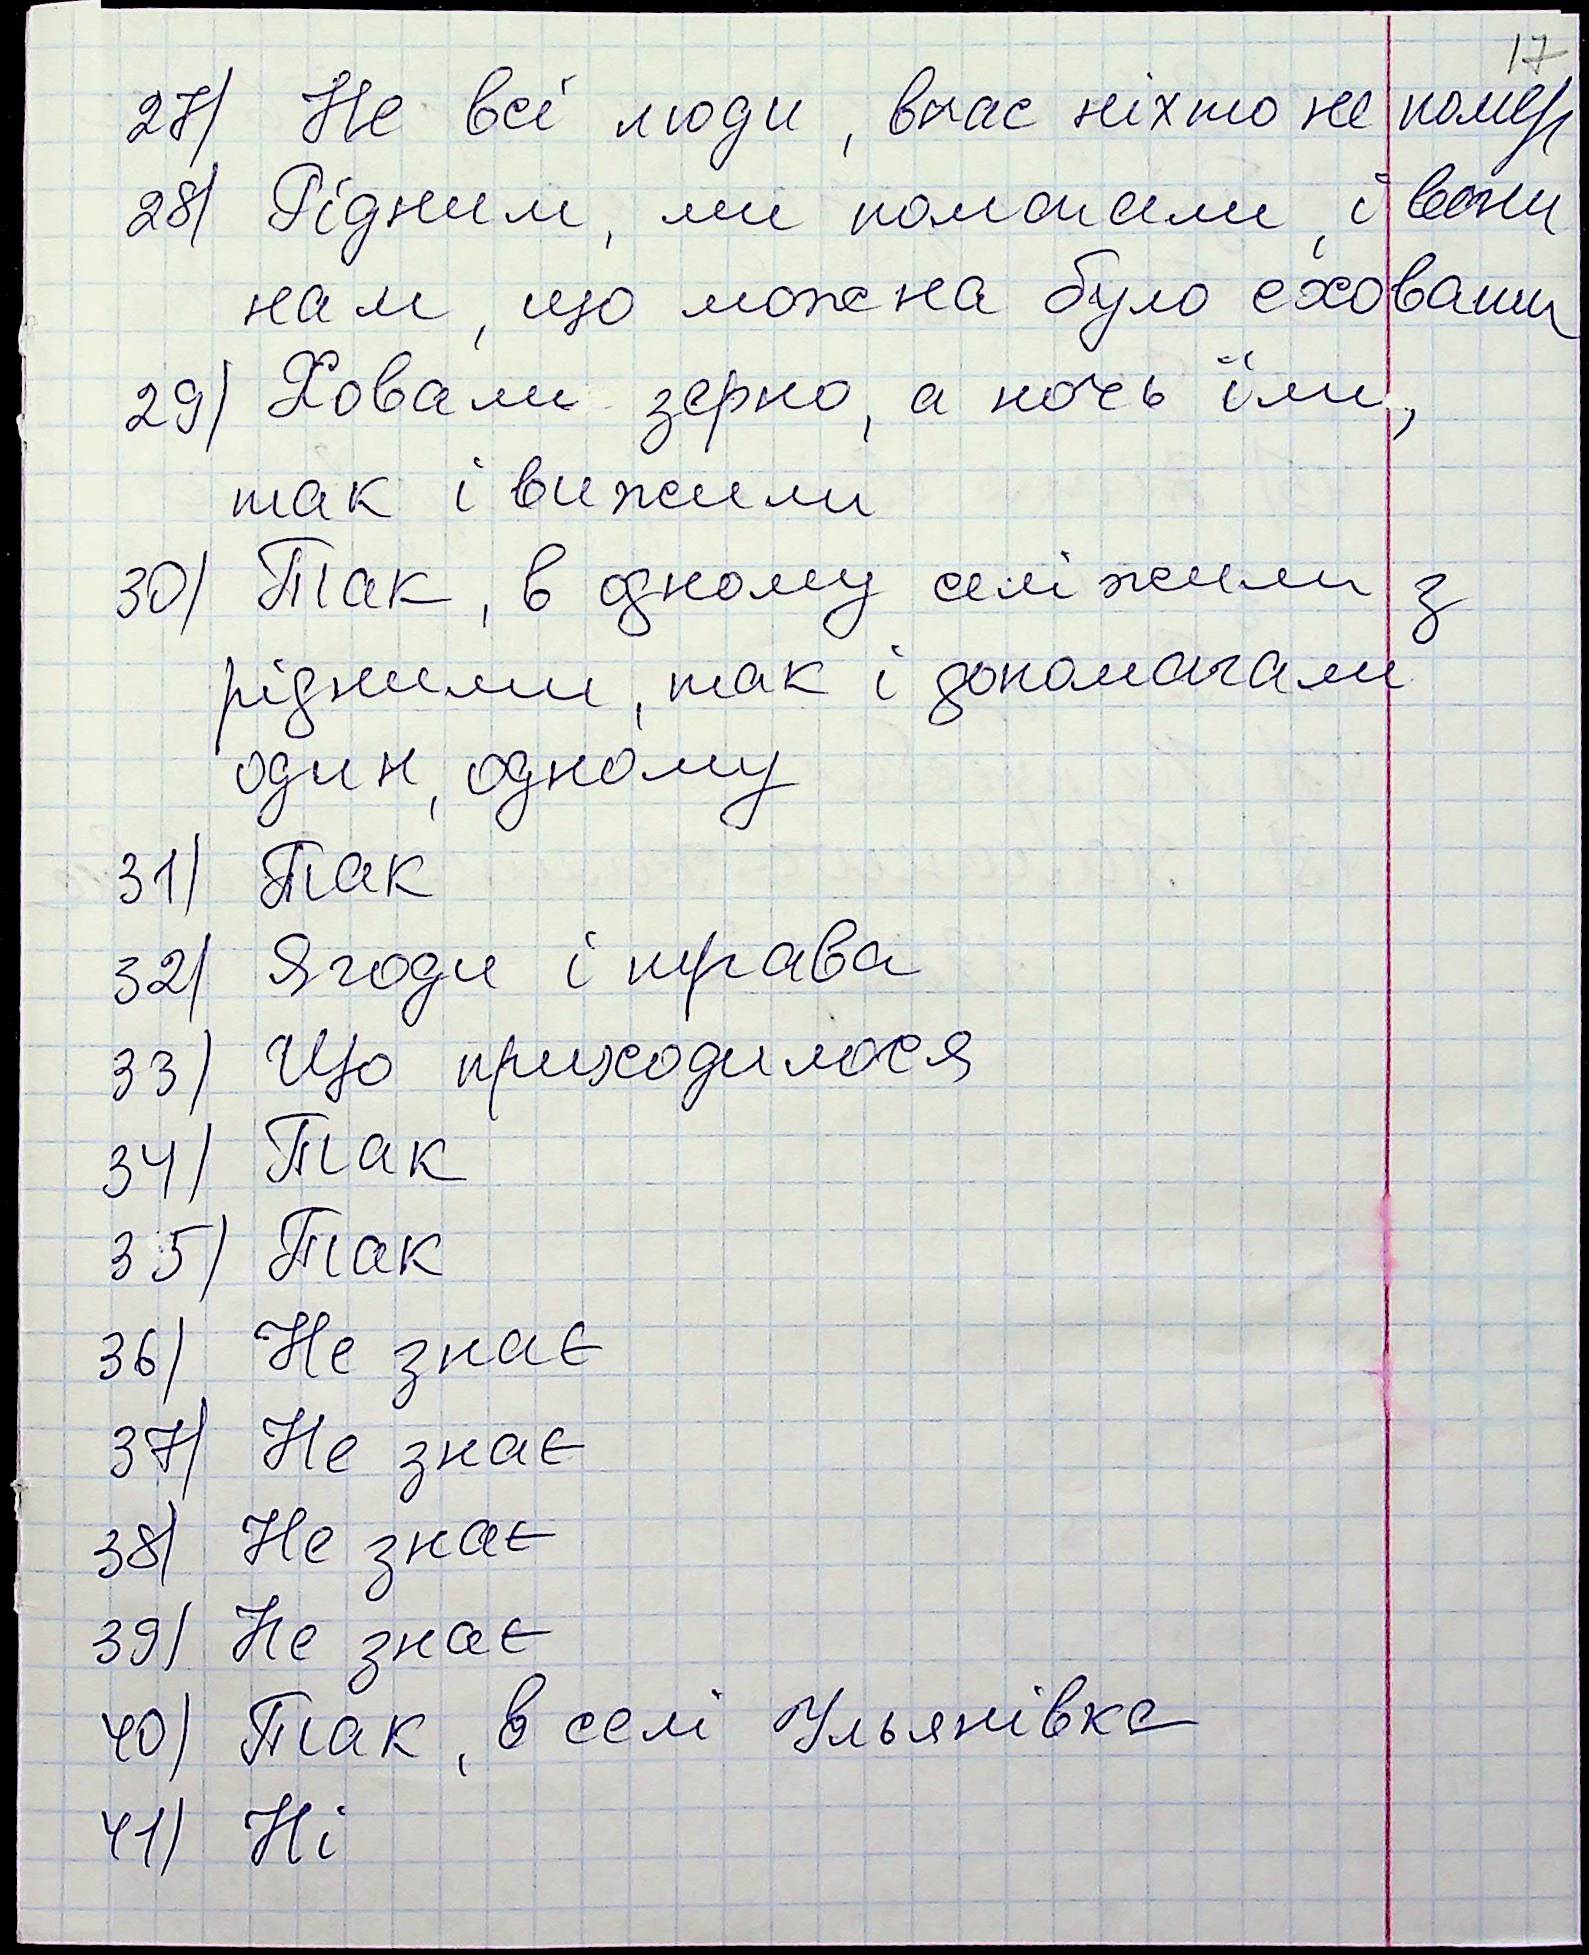 17
27) Не всі люди, внас ніхто не помер
28) Рідним, ми помагали, і вони
нам, що можна було сховати
29) Ховали зерно, а ночь їли,
так і вижили
30) Так, в одному селі жили з
рідними, так і допомагали
один, одному
31) Так
32) Ягоди і трава
33) Що приходилося
34) Так
35) Так
36) Не знає
37) Не знає
38) Не знає
39) Не знає
40) Так, в селі Ульянівка
41) Ні